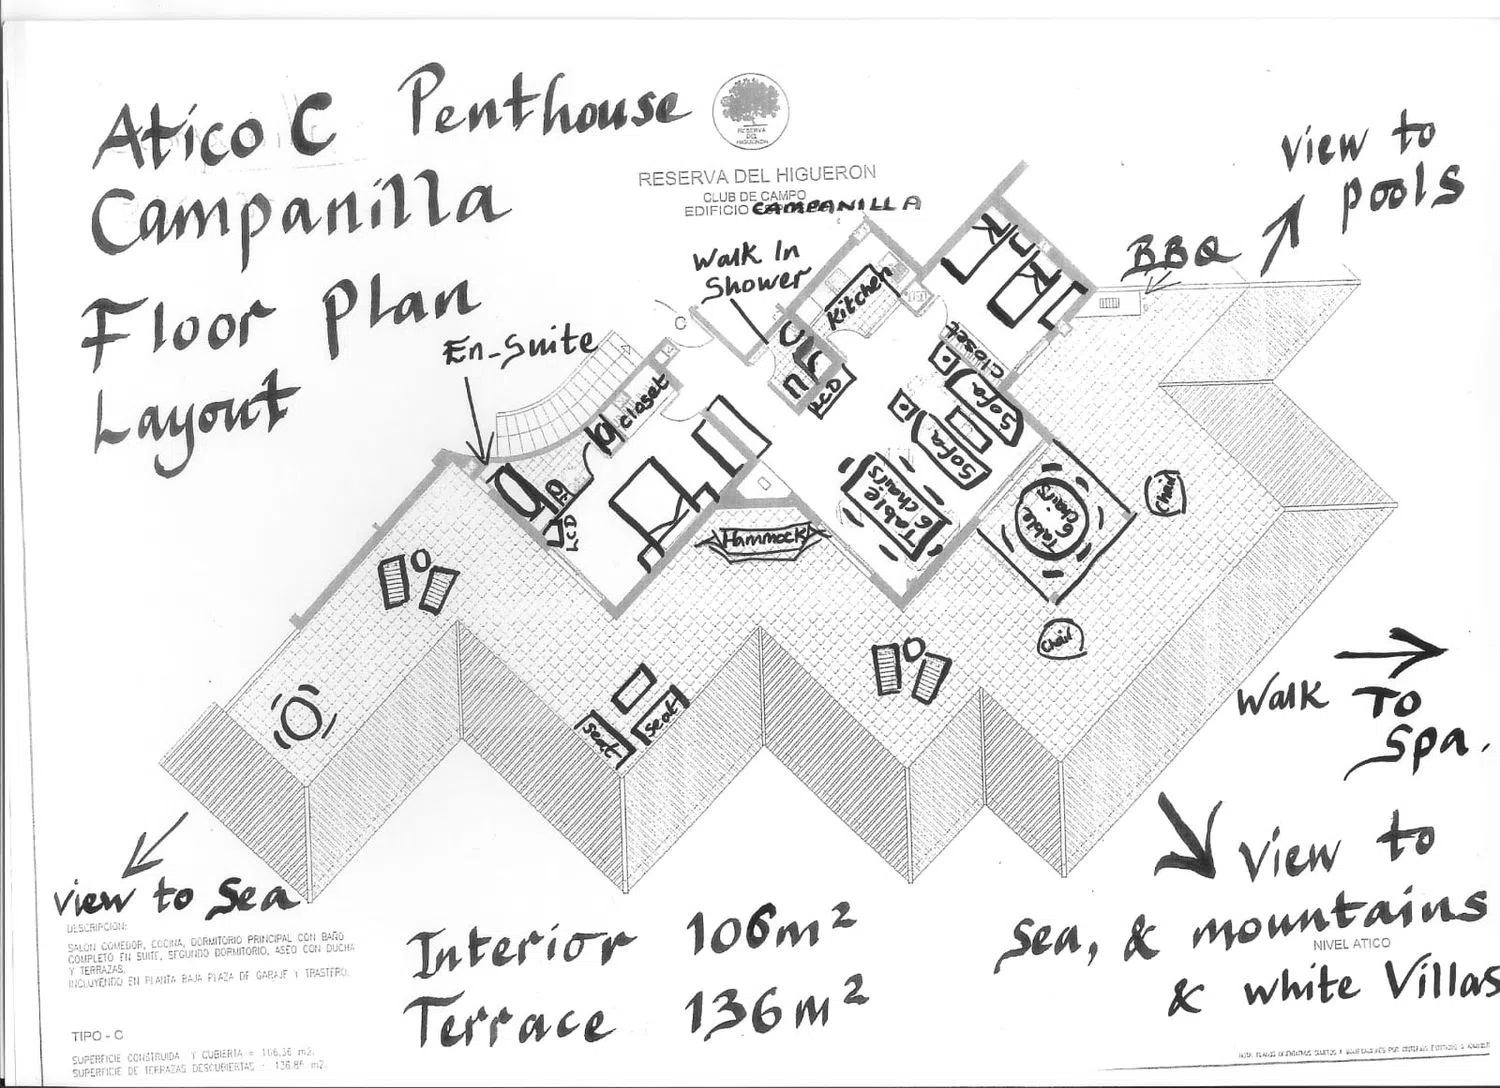 Atico C Penthouse
Campanilla
Floor Plan
Layout
RESERVA
DEL
HIGUERON
RESERVA DEL HIGUERON
CLUB DE CAMPO
EDIFICIO CAMPANILLA
View to
pools
BBQ
Walk In
Shower
En-Suite
C
Kitchen
closet
closet
LCD
LCD
Sofa
Sofa
Table
6 chairs
Table
6 chairs
Chair
Chair
Hammock
seat
seat
Walk To
Spa.
View to Sea
View to
Sea, & mountains
& white Villas
NIVEL ATICO
Interior 106m²
Terrace 136m²
DESCRIPCION:
SALON COMEDOR, COCINA, DORMITORIO PRINCIPAL CON BAÑO
COMPLETO EN SUITE, SEGUNDO DORMITORIO, ASEO CON DUCHA
Y TERRAZAS.
INCLUYENDO EN PLANTA BAJA PLAZA DE GARAJE Y TRASTERO.
TIPO - C
SUPERFICIE CONSTRUIDA Y CUBIERTA = 106,36 m2.
SUPERFICIE DE TERRAZAS DESCUBIERTAS : 136,85 m2.